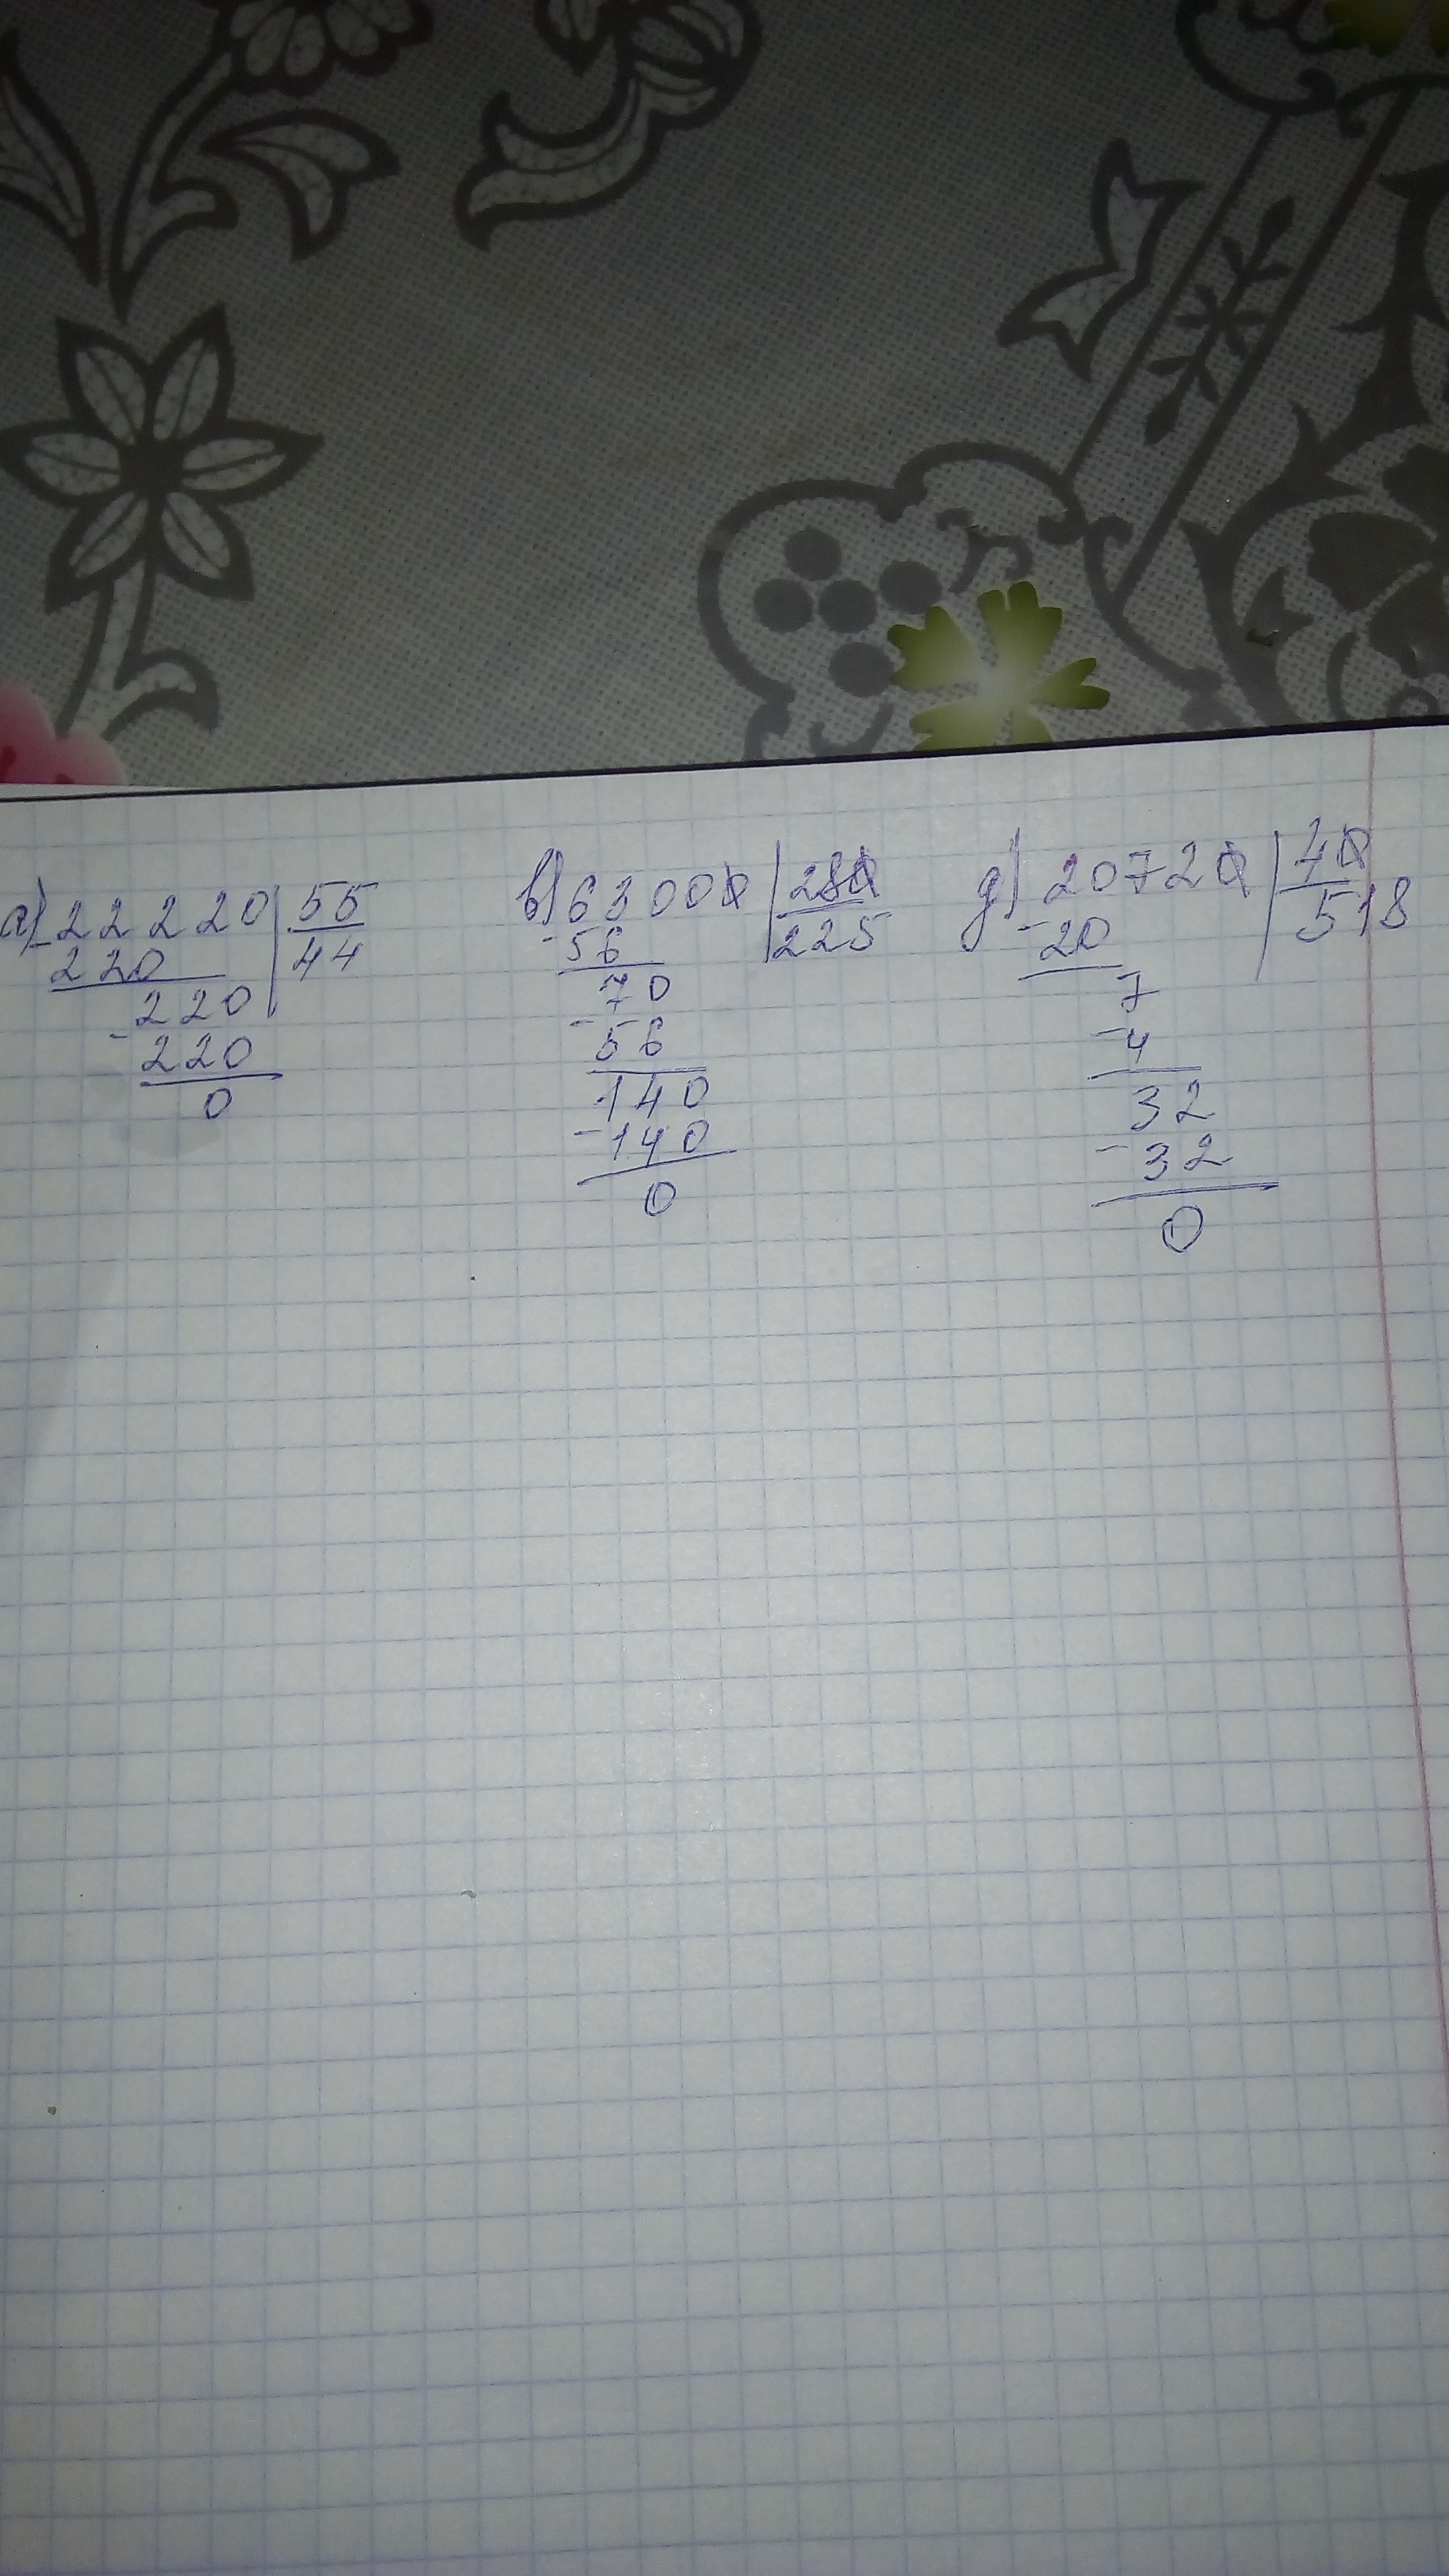 а) 22220 | 55
220 | 44
- 220
220
0
в) 63000 | 280
- 56 | 225
70
- 56
140
- 140
0
д) 20720 | 40
- 20 | 518
7
- 4
32
- 32
0